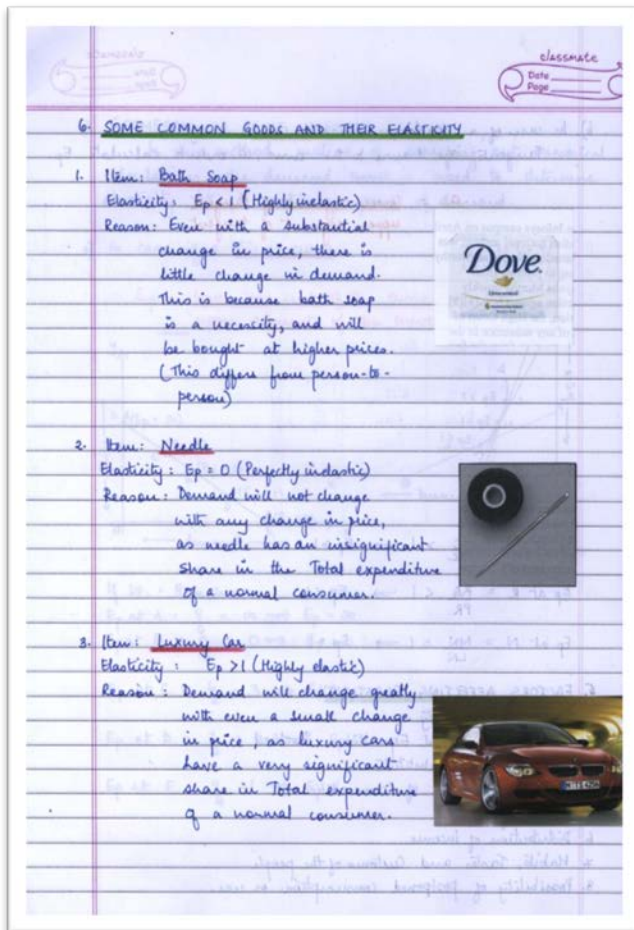 classmate
Date
Page
6. SOME COMMON GOODS AND THEIR ELASTICITY
1. Item: Bath Soap
Elasticity: Ep < 1 (Highly inelastic)
Reason: Even with a substantial
change in price, there is
little change in demand.
This is because bath soap
is a necessity, and will
be bought at higher prices.
(This differs from person-to-
person)
Dove
2. Item: Needle
Elasticity: Ep = 0 (Perfectly inelastic)
Reason: Demand will not change
with any change in price,
as needle has an insignificant
share in the Total expenditure
of a normal consumer.
3. Item: Luxury Car
Elasticity: Ep >1 (Highly elastic)
Reason: Demand will change greatly
with even a small change
in price, as luxury cars
have a very significant
share in Total expenditure
of a normal consumer.